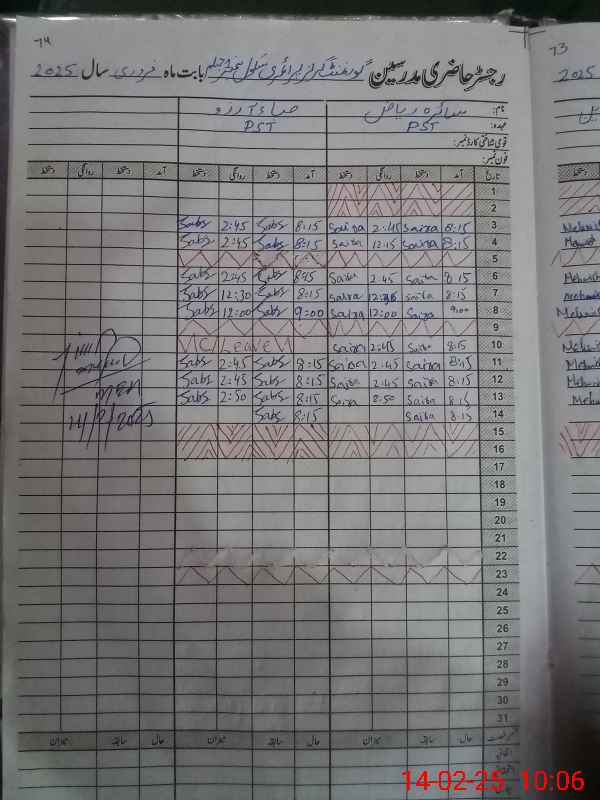 74
رجسٹر حاضری مدرسین گورنمنٹ گرلز پرائمری سکول بابت ماہ فروری سال 2025
نام: سائرہ ریاض صباء آرزو
عہدہ: PST PST
قومی شناختی کارڈ نمبر:
فون نمبر:
تاریخ آمد دستخط روانگی دستخط آمد دستخط روانگی دستخط آمد دستخط روانگی دستخط
1
2
3 8:15 Saira 2:45 Saira 8:15 Sabs 2:45 Sabs
4 8:15 Saira 12:15 Saira 8:15 Sabs 2:45 Sabs
5
6 8:15 Saira 2:45 Saira 8:15 Sabs 2:45 Sabs
7 8:15 Saira 12:30 Saira 8:15 Sabs 12:30 Sabs
8 9:00 Saira 12:00 Saira 9:00 Sabs 12:00 Sabs
9
10 8:15 Saira 2:45 Saira C/Leave
11 8:15 Saira 2:45 Saira 8:15 Sabs 2:45 Sabs
12 8:15 Saira 2:45 Saira 8:15 Sabs 2:45 Sabs
13 8:15 Saira 2:50 Saira 8:15 Sabs 2:50 Sabs
14 8:15 Saira 8:15 Sabs
14/2/2025
15
16
17
18
19
20
21
22
23
24
25
26
27
28
29
30
31
حال سابقہ میزان حال سابقہ میزان حال سابقہ میزان
اتفاقی
73
2025
14-02-25 10:06